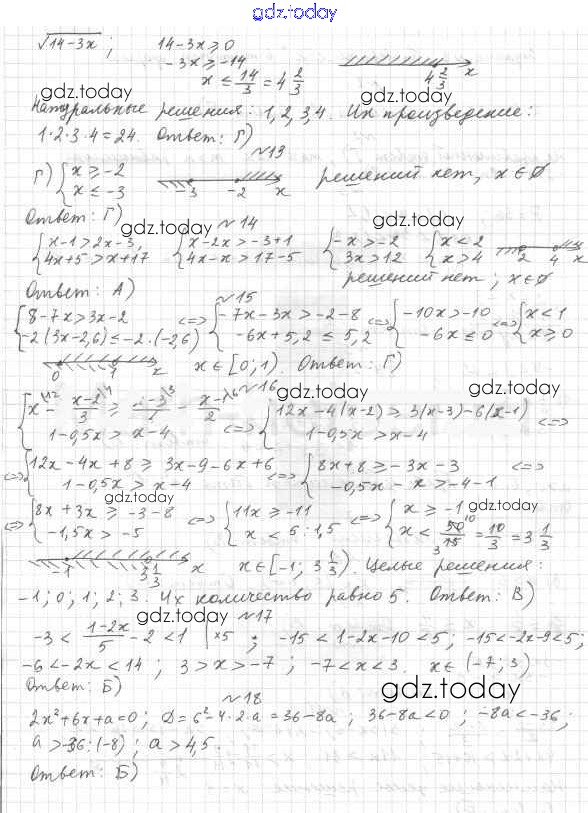 gdz.today
√14-3x ; 14-3x⩾0
-3x⩾-14
gdz.today
x ≤ 14/3 = 4 2/3 4 2/3 x
gdz.today
Натуральные решения: 1,2,3,4. Их произведение:
1·2·3·4=24. Ответ: Г)
gdz.today
№13
Г) { x ⩾ -2
x ≤ -3 -3 -2 x решений нет, x∈∅
Ответ: Г)
gdz.today
№14
gdz.today
{ x-1>2x-3, { x-2x>-3+1 { -x>-2 { x<2
4x+5>x+17 4x-x>17-5 3x>12 x>4 2 4 x
решений нет; x∈∅
Ответ: А)
gdz.today
№15
{ 8-7x>3x-2 <=> { -7x-3x>-2-8 <=> { -10x>-10 <=> { x<1
-2(3x-2,6)≤-2·(-2,6) -6x+5,2≤5,2 -6x≤0 x⩾0
0 1 x x∈[0;1). Ответ: Г)
gdz.today
№16
gdz.today
{ x - x-2/3 ⩾ x-3/4 - x-1/2 <=> { 12x-4(x-2)⩾3(x-3)-6(x-1) <=>
1-0,5x > x-4 1-0,5x>x-4
<=> { 12x-4x+8⩾3x-9-6x+6 <=> { 8x+8⩾-3x-3 <=>
1-0,5x>x-4 -0,5x-x>-4-1
gdz.today
gdz.today
<=> { 8x+3x⩾-3-8 <=> { 11x⩾-11 <=> { x⩾-1
-1,5x>-5 x<5:1,5 x< 50/15 = 10/3 = 3 1/3
-1 3 1/3 x x∈[-1; 3 1/3). Целые решения:
-1; 0; 1; 2; 3. Их количество равно 5. Ответ: В)
gdz.today
№17
-3 < 1-2x/5 - 2 < 1 |×5 ; -15<1-2x-10<5; -15<-2x-9<5;
-6<-2x<14; 3>x>-7; -7<x<3. x∈(-7;3)
Ответ: Б)
gdz.today
№18
2x²+6x+a=0; D=6²-4·2·a=36-8a; 36-8a<0; -8a<-36;
a>-36:(-8); a>4,5.
gdz.today
Ответ: Б)